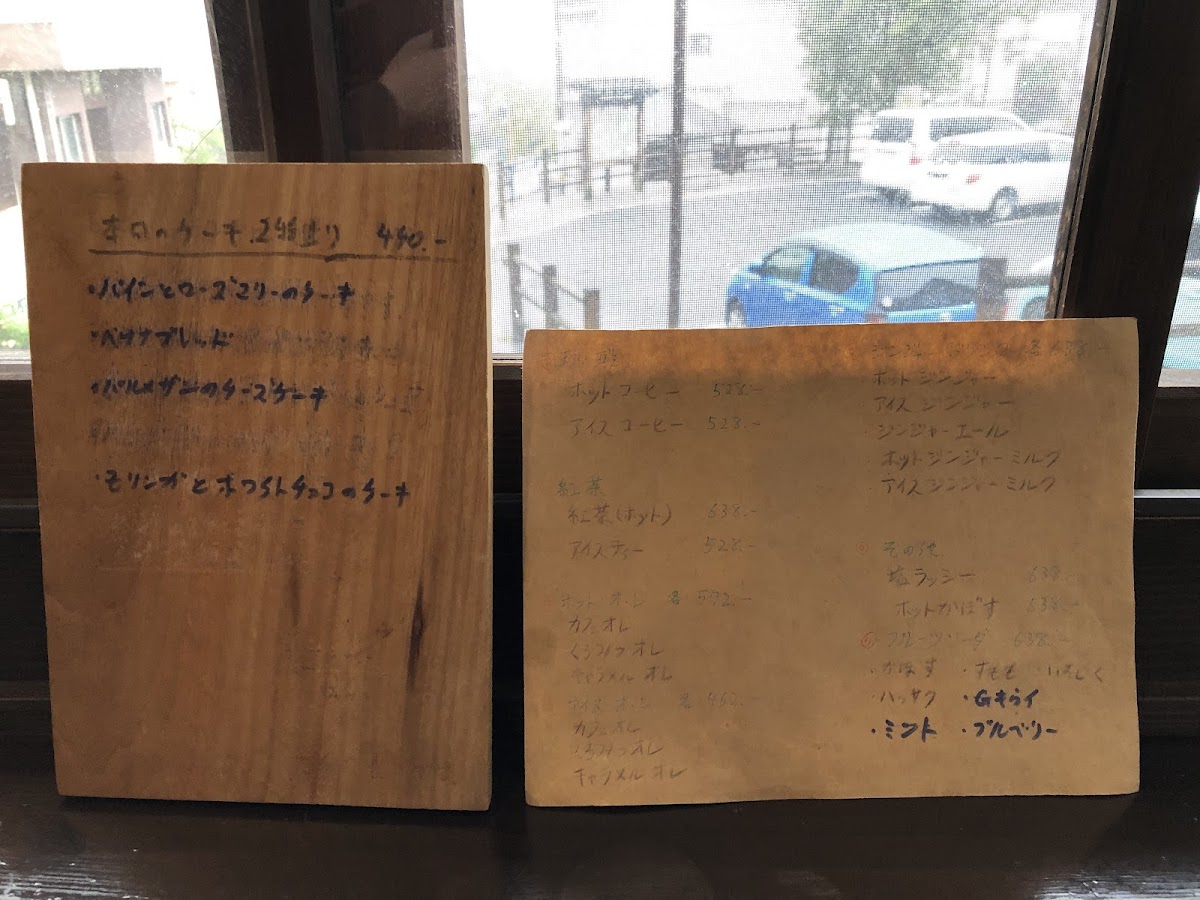 本日のケーキ 2種盛り 440.-
・パインとローズマリーのケーキ
・バナナブレッド
・パルメザンのチーズケーキ
・モリンガとホワイトチョコのケーキ
ホットコーヒー 528.-
アイスコーヒー 528.-
紅茶
紅茶(ホット) 638.-
アイスティー 528.-
ホット オ・レ 各
カフェオレ
くろみつオレ
キャラメルオレ
アイス オ・レ 各 462.-
カフェオレ
くろみつオレ
キャラメルオレ
ジンジャードリンク 各 638.-
・ホットジンジャー
・アイスジンジャー
・ジンジャーエール
・ホットジンジャーミルク
・アイスジンジャーミルク
その他
塩ラッシー 638.-
ホットかぼす 638.-
フルーツソーダ 638.-
・かぼす ・すもも
・ハッサク ・Gキウイ
・ミント ・ブルーベリー